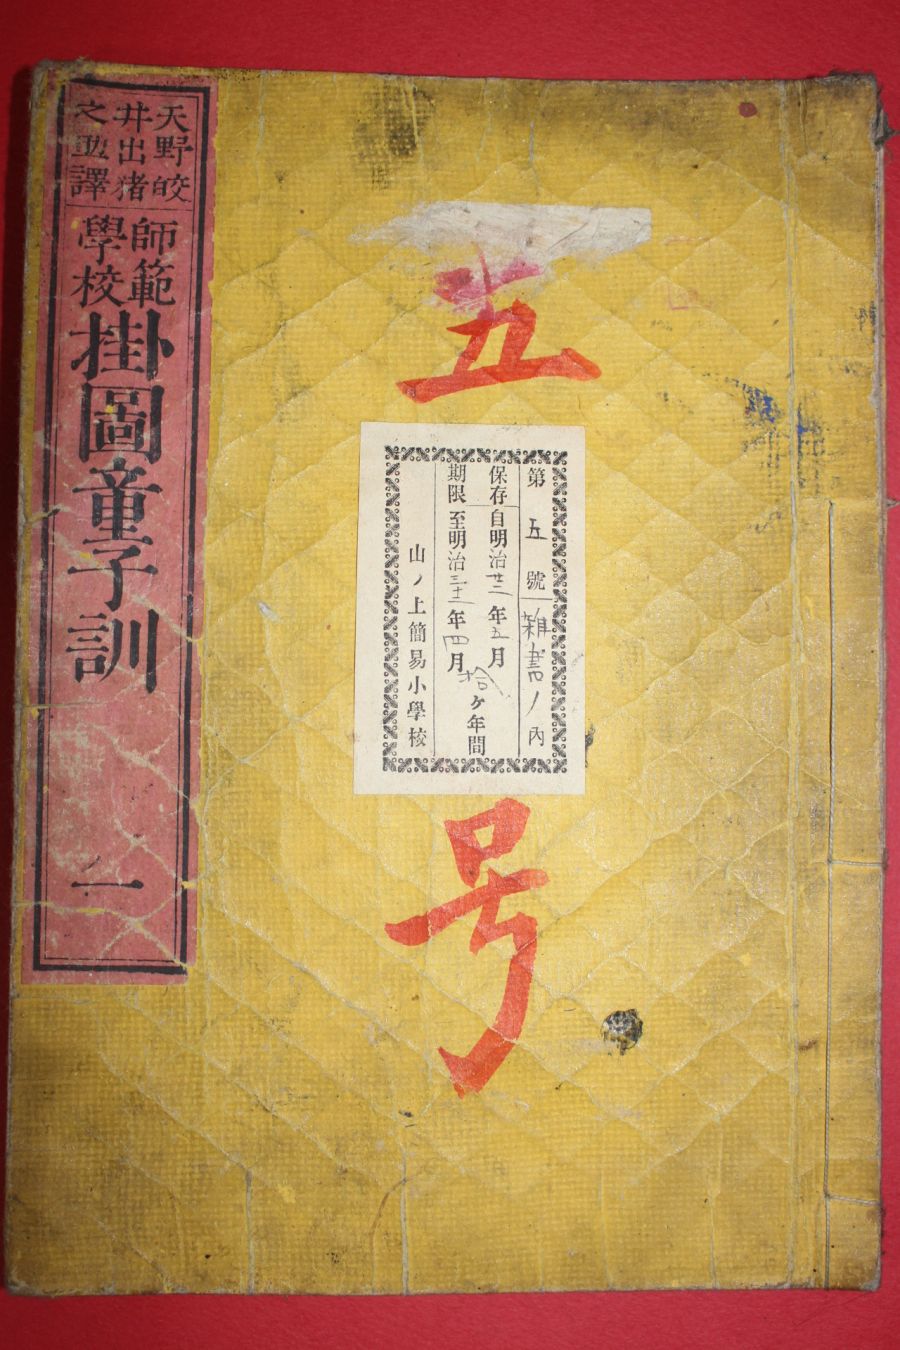 五
号
第五號 雜書ノ內
保存 自明治廿二年五月
期限 至明治三十二年四月
拾ヶ年間
山ノ上簡易小學校
天野皎
井出猪
之助譯
師範
學校
掛圖童子訓
一